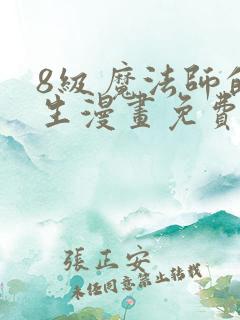 8級魔法師的
生漫畫免費
張正安
未經同意禁止轉載